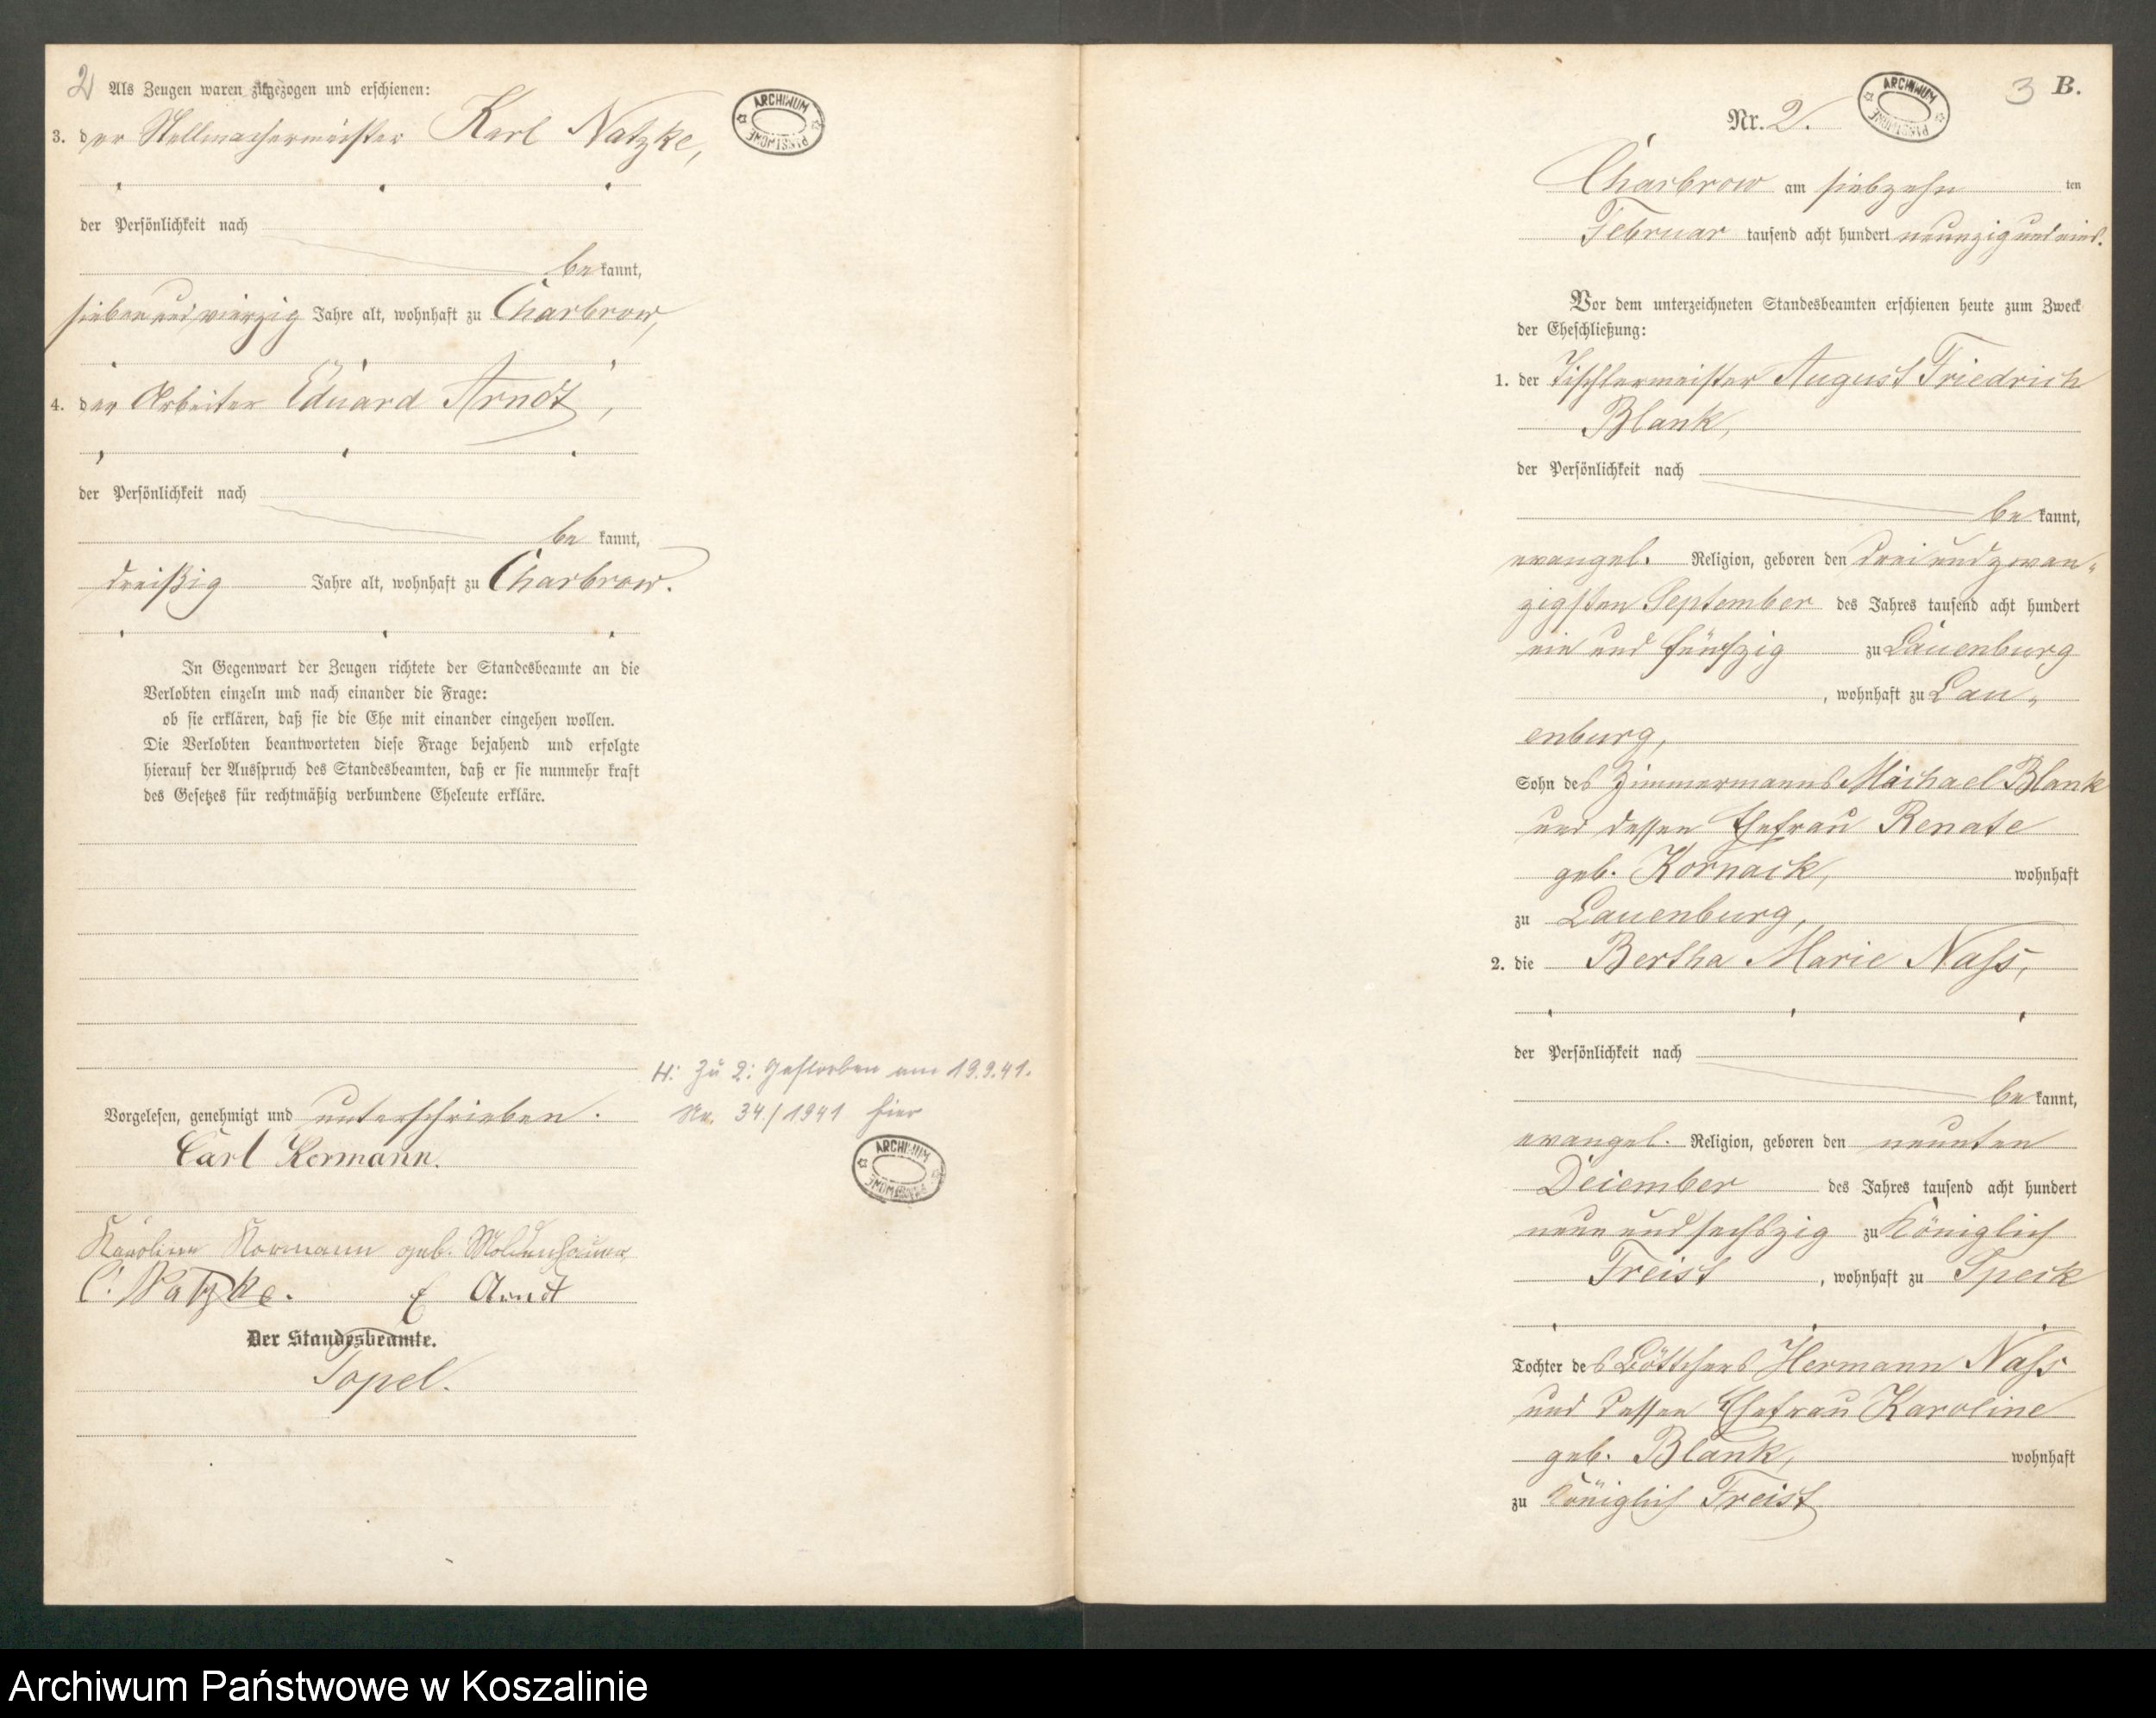 2
Als Zeugen waren zugezogen und erschienen:
3. der Stellmachermeister Karl Natzke,
der Persönlichkeit nach
bekannt,
sieben und vierzig Jahre alt, wohnhaft zu Charbrow,
4. der Arbeiter Eduard Arndt,
der Persönlichkeit nach
bekannt,
dreißig Jahre alt, wohnhaft zu Charbrow.
In Gegenwart der Zeugen richtete der Standesbeamte an die
Verlobten einzeln und nach einander die Frage:
ob sie erklären, daß sie die Ehe mit einander eingehen wollen.
Die Verlobten beantworteten diese Frage bejahend und erfolgte
hierauf der Ausspruch des Standesbeamten, daß er sie nunmehr kraft
des Gesetzes für rechtmäßig verbundene Eheleute erkläre.
H: Zu 2: Gestorben am 19.9.41.
Nr. 34./1941 hier
Vorgelesen, genehmigt und unterschrieben.
Carl Kormann.
Karoline Kormann geb. Moldenhauer
C. Natzke. E Arndt
Der Standesbeamte.
Topel.
ARCHIWUM PAŃSTWOWE
ARCHIWUM PAŃSTWOWE
3 B.
ARCHIWUM PAŃSTWOWE
Nr. 2.
Charbrow am siebzehnten
Februar tausend acht hundert neunzig und eins.
Vor dem unterzeichneten Standesbeamten erschienen heute zum Zweck
der Eheschließung:
1. der Tischlermeister August Friedrich
Blank,
der Persönlichkeit nach
bekannt,
evangel. Religion, geboren den drei und zwan-
zigsten September des Jahres tausend acht hundert
ein und fünfzig zu Lauenburg
, wohnhaft zu Lau-
enburg,
Sohn des Zimmermanns Michael Blank
und dessen Ehefrau Renate
geb. Kornack, wohnhaft
zu Lauenburg,
2. die Bertha Marie Nass,
der Persönlichkeit nach
bekannt,
evangel. Religion, geboren den neunten
Dezember des Jahres tausend acht hundert
neun und sechszig zu Königlich
Freist, wohnhaft zu Speck
Tochter des Böttchers Hermann Nass
und dessen Ehefrau Karoline
geb. Blank, wohnhaft
zu Königlich Freist
Archiwum Państwowe w Koszalinie